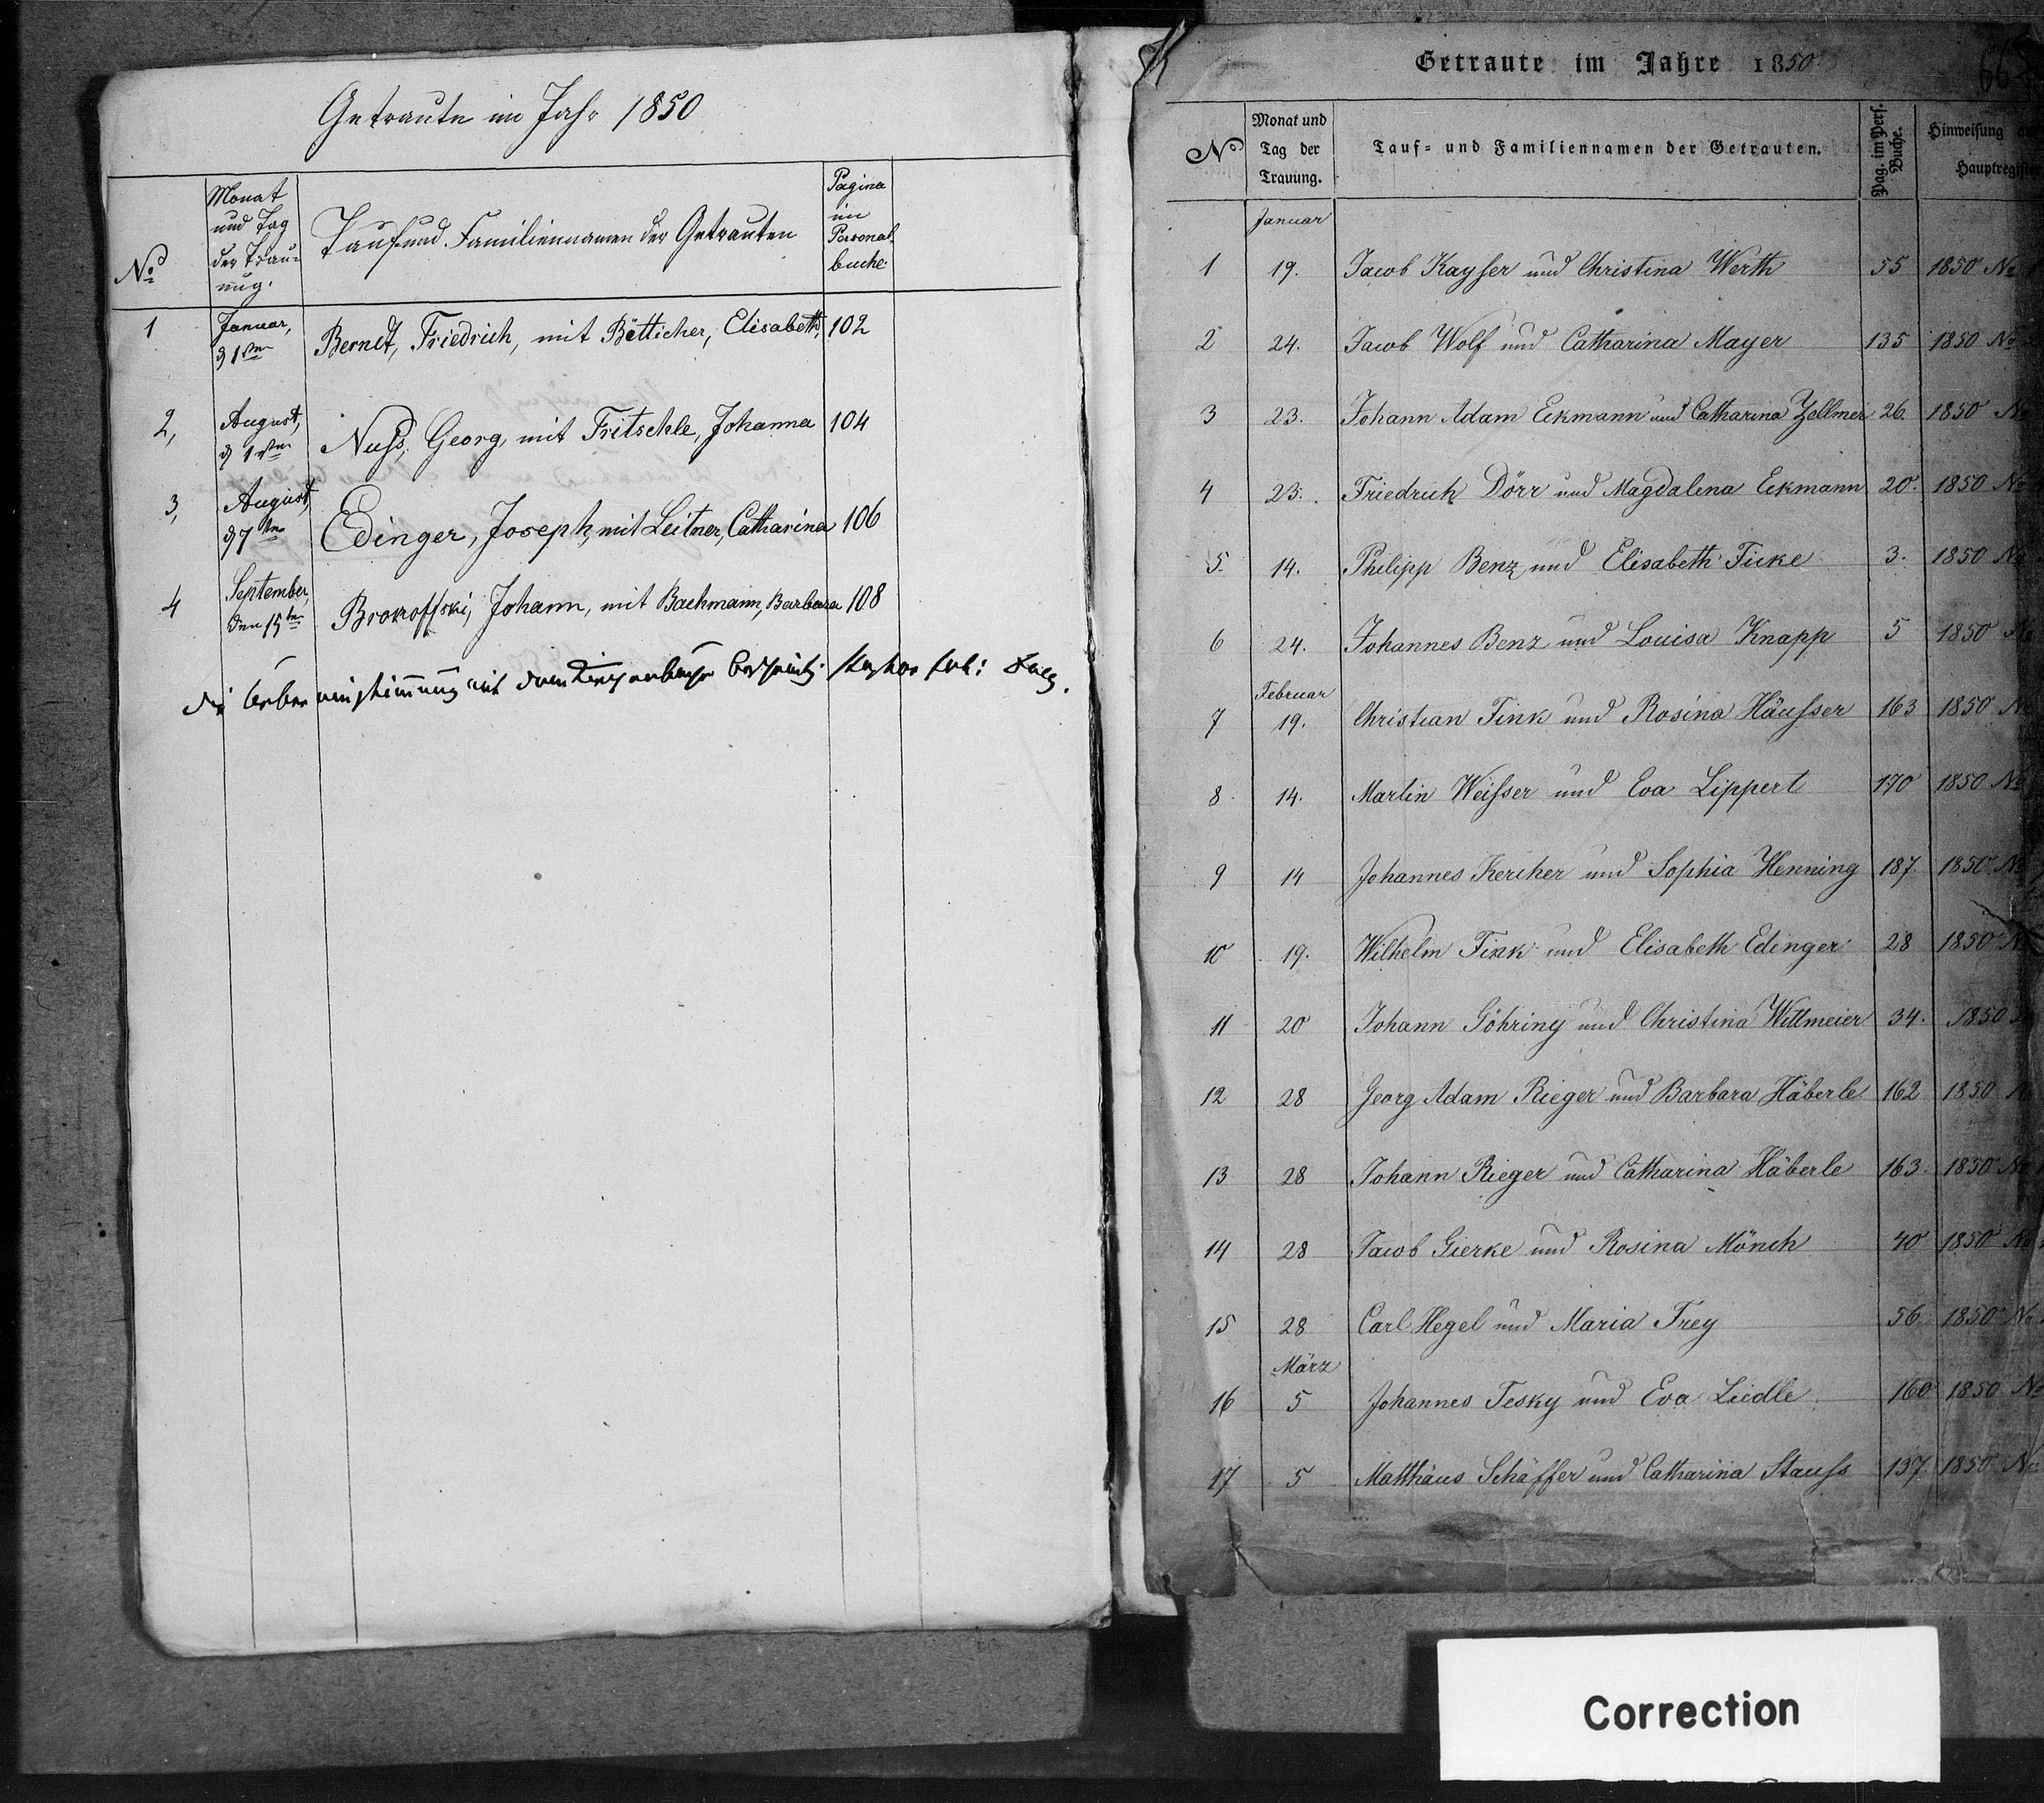 Getraute im Jahr 1850
No
Monat
und Tag
der Trau-
ung.
Tauf und Familiennamen der Getrauten
Pagina
im
Personal-
buche
1 Januar, d 1ten Berndt, Friedrich, mit Bötticher, Elisabeth, 102
2, August, d 1ten Nuss, Georg, mit Fritschle, Johanna 104
3, August, d 7ten Edinger, Joseph, mit Leitner, Catharina 106
4 September, den 15ten Brokroffski, Johann, mit Bachmann, Barbara 108
die Uebereinstimmung mit dem Kirchenbuche bescheinigt Pastor
Getraute im Jahre 1850
No
Monat und
Tag der
Trauung.
Tauf- und Familiennamen der Getrauten.
Pag. im Pers.
Buche.
Hinweisung
Januar
1 19. Jacob Kayser und Christina Werth 55 1850 No
2 24. Jacob Wolf und Catharina Mayer 135 1850 No
3 23. Johann Adam Eckmann und Catharina Zellmer 26 1850 No
4 23. Friedrich Dörr und Magdalena Eckmann 20. 1850 No
5 14. Philipp Benz und Elisabeth Ficke 3. 1850 No
6 24. Johannes Benz und Louisa Knapp 5 1850 No
Februar
7 19. Christian Fink und Rosina Häusser 163 1850 No
8 14. Martin Weisser und Eva Lippert 170 1850 No
9 14 Johannes Kercher und Sophia Henning 187 1850 No
10 19. Wilhelm Fink und Elisabeth Edinger 28 1850 No
11 20 Johann Göhring und Christina Wittmeier 34. 1850
12 28 Georg Adam Rieger und Barbara Häberle 162 1850 No
13 28 Johann Rieger und Catharina Häberle 163 1850 No
14 28 Jacob Gierke und Rosina Mönch 40 1850 No
15 28 Carl Hegel und Maria Frey 56 1850 No
März
16 5 Johannes Tesky und Eva Liedle 160 1850 No
17 5 Matthäus Schäffer und Catharina Stauss 137 1850 No
Correction